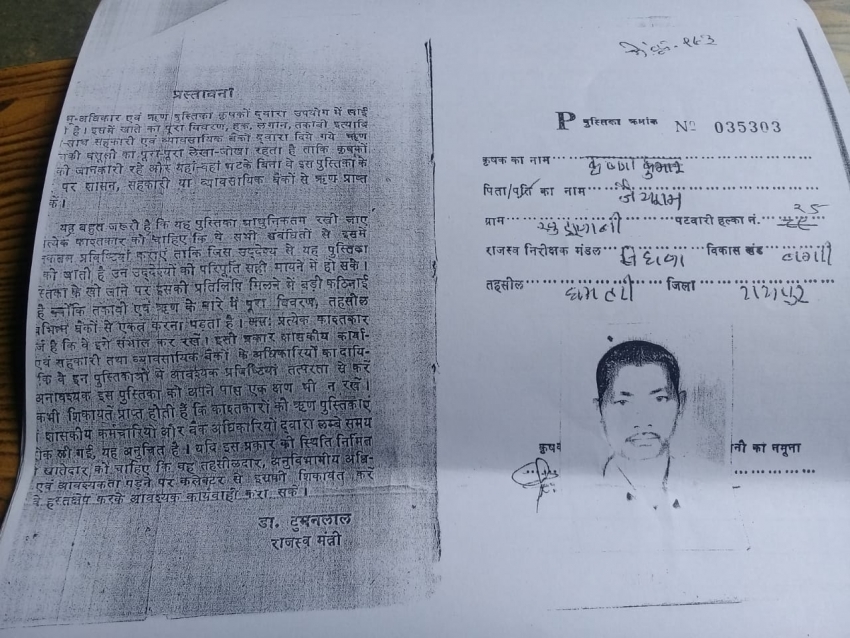 प्रस्तावना
भू-अधिकार एवं ऋण पुस्तिका कृषकों द्वारा उपयोग में लाई
है। इसमें खाते का पूरा विवरण, हक, लगान, तकावी इत्यादि
साथ सहकारी एवं व्यावसायिक बैंकों द्वारा दिये गये ऋण
वसूली का पूरा-पूरा लेखा-जोखा रहता है ताकि कृषकों
को जानकारी रहे और यहाँ-वहाँ भटके बिना वे इस पुस्तिका के
पर शासन, सहकारी या व्यावसायिक बैंकों से ऋण प्राप्त
कें।
यह बहुत जरूरी है कि यह पुस्तिका आधुनिकतम रखी जाए
त्येक काश्तकार को चाहिए कि वे सभी संबंधितों से इसमें
प्रविष्टियाँ कराएं ताकि जिस उद्देश्य से यह पुस्तिका
की जाती है उन उद्देश्यों की परिपूर्ति सही मायने में हो सके।
स्तका के खो जाने पर इसकी प्रतिलिपि मिलने में बड़ी कठिनाई
है क्योंकि तकावी एवं ऋण के बारे में पूरा विवरण, तहसील
बैंकों से एकत्र करना पड़ता है। अतः प्रत्येक काश्तकार
र्ज है कि वे इसे संभाल कर रखें। इसी प्रकार शासकीय कार्या-
एवं सहकारी तथा व्यावसायिक बैंकों के अधिकारियों का दायि-
कि वे इन पुस्तिकाओं में आवश्यक प्रविष्टियाँ तत्परता से करें
अनावश्यक इस पुस्तिका को अपने पास एक क्षण भी न रखें।
कभी शिकायतें प्राप्त होती हैं कि काश्तकारों की ऋण पुस्तिकाएं
शासकीय कर्मचारियों और बैंक अधिकारियों द्वारा लम्बे समय
क ली गई, यह अनुचित है। यदि इस प्रकार की स्थिति निर्मित
खातेदार को चाहिए कि वह तहसीलदार, अनुविभागीय अधि-
एवं आवश्यकता पड़ने पर कलेक्टर से इसकी शिकायत करें
वे हस्तक्षेप करके आवश्यक कार्यवाही करा सकें।
डा. टुमनलाल
राजस्व मंत्री
P पुस्तिका क्रमांक No 035303
कृषक का नाम कृष्णा कुमार
पिता/पति का नाम जयराम
ग्राम पटवारी हल्का नं. २५
राजस्व निरीक्षक मंडल विकास खंड
तहसील धमतरी जिला रायपुर
कृषक नी का नमूना